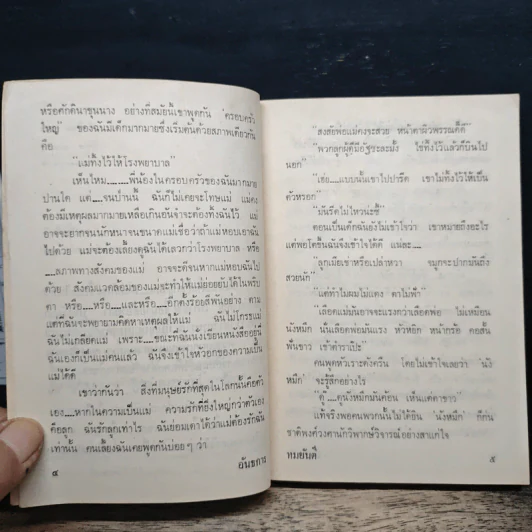 หรือศักดินาขุนนาง อย่างที่สมัยนี้เขาพูดกัน 'ครอบครัว
ใหญ่' ของฉันมีเด็กมากมายซึ่งเริ่มต้นด้วยสภาพเดียวกัน
คือ
"แม่ทิ้งไว้ให้โรงพยาบาล"
เห็นไหม.........พี่น้องในครอบครัวของฉันมากมาย
ปานใด แต่.....จนบ้านนั้น ฉันก็ไม่เคยจะโทษแม่ แม่คง
ต้องมีเหตุผลมากมายเหลือเกินอันจำจะต้องทิ้งฉันไว้ แม่
อาจจะยากจนนักหนาจนขนาดแม่เชื่อว่าถ้าแม่หอบเอาฉัน
ไปด้วย แม่จะต้องเลี้ยงดูฉันได้เลวกว่าโรงพยาบาล หรือ
.....สภาพทางสังคมของแม่ อาจจะดีจนหากแม่หอบฉันไป
ด้วย สังคมแวดล้อมของแม่จะทำให้แม่อยู่ไม่ได้ในพริบ
ตา หรือ.....หรือ.....และหรือ....อีกตั้งร้อยสี่พันอย่าง ตาม
แต่ที่ฉันจะพยายามคิดหาเหตุผลให้แม่ ฉันไม่โกรธแม่
ฉันไม่เกลียดแม่ เพราะ....ขณะที่ฉันนั่งเขียนหนังสืออยู่นี้
ฉันเองก็เป็นแม่คนแล้ว ฉันจึงเข้าใจหัวอกของความเป็น
แม่ได้ดี
เขาว่ากันว่า สิ่งที่มนุษย์รักที่สุดในโลกนั้นคือตัว
เอง.....หากในความเป็นแม่ ความรักที่ยิ่งใหญ่กว่าตัวเอง
คือลูก ฉันรักลูกเท่าไร ฉันย่อมเดาได้ว่าแม่ต้องรักฉัน
เท่านั้น คนเลี้ยงฉันเคยพูดกันบ่อยๆ ว่า
๔ อันธกาล
"สงสัยพ่อแม่คงจะสวย หน้าตาผิวพรรณก็ดี"
"พวกลูกผู้ดีมีอัฐซะละมั้ง ไข่ทิ้งไว้แล้วก็บินไป
นอก"
"เฮ่อ.....แบบนั้นเขาไปปารีด เขาไม่ทิ้งไว้ให้เป็น
ตัวหรอก"
"มันรีดไม่ไหวน่ะซี"
ตอนเป็นเด็กฉันยังไม่เข้าใจว่า เขาหมายถึงอะไร
แต่พอโตขึ้นฉันจึงเข้าใจได้ดี แน่ละ....
"ลูกเมียเช่าหรือเปล่าหวา จมูกจะปากมันถึง
สวยนัก"
"แต่ทำไมผมไม่แดง ตาไม่ฟ้า"
"เลือดแม่มันอาจจะแรงกว่าเลือดพ่อ ไม่เหมือน
นังหมึก นั่นเลือดพ่อมันแรง หัวหยิก หน้ากร้อ คอสั้น
ฟันขาว เข้าตำราเป๊ะ"
คนพูดหัวเราะดังครืน โดยไม่เข้าใจเลยว่า 'นัง
หมึก' จะรู้สึกอย่างไร
"ดู๊.....ดูนังหมึกมันค้อน เห็นแต่ตาขาว"
แท้จริงพอคนพวกนั้นไม่ได้ยิน 'นังหมึก' ก็ก่น
ชาติพงศ์วงศานักวิพากษ์วิจารณ์อย่างสาแก่ใจ
ทมยันตี ๕